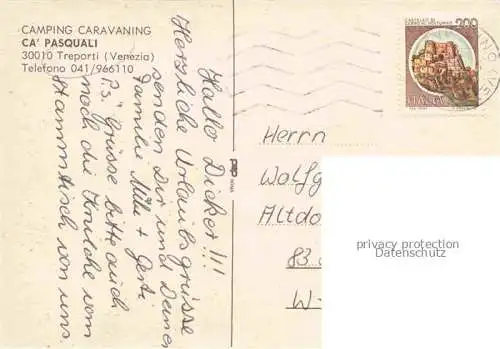 CAMPING CARAVANING
CA' PASQUALI
30010 Treporti (Venezia)
Telefono 041/966110
Hallo Dicker!!!
Herzliche Urlaubsgrüsse
senden Dir und Deiner
Familie
P.s. Grüsse bitte auch
noch die Knilche vom
Stammtisch von uns.
200
ITALIA
Herrn
Wolfg
Altdo
83
W-
privacy protection
Datenschutz